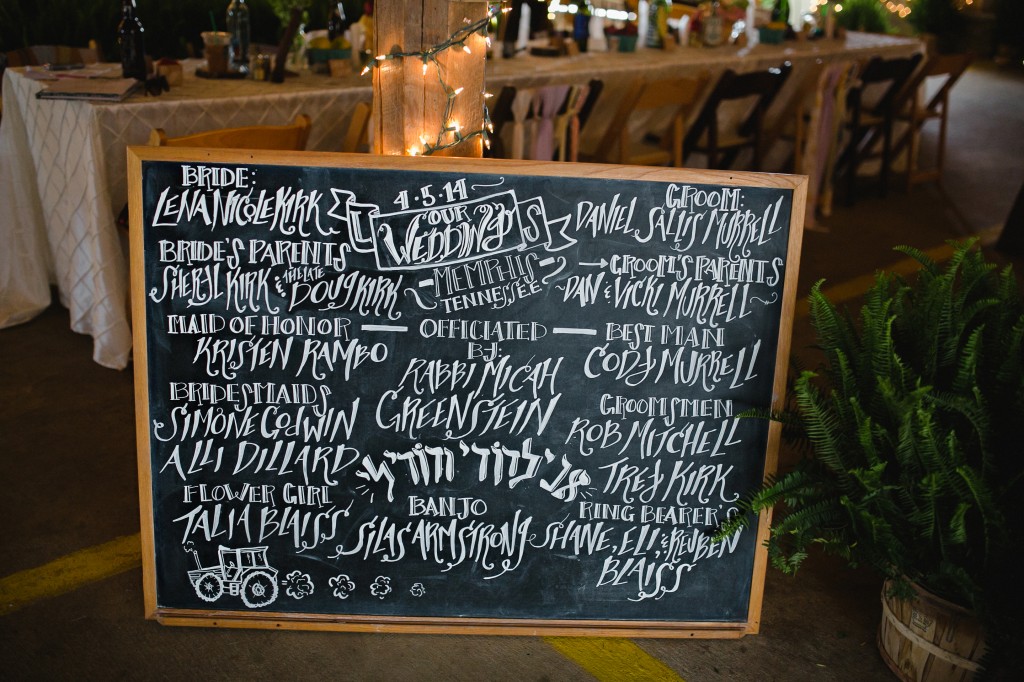 BRIDE:
LENA NICOLE KIRK
BRIDE'S PARENTS
SHERYL KIRK & THE LATE DOUG KIRK
MAID OF HONOR
KRISTEN RAMBO
BRIDESMAIDS
SIMONE GODWIN
ALLI DILLARD
FLOWER GIRL
TALIA BLAISS
4.5.14
OUR
WEDDING
MEMPHIS
TENNESSEE
OFFICIATED
BY:
RABBI MICAH
GREENSTEIN
אני לדודי ודודי לי
BANJO
SILAS ARMSTRONG
GROOM:
DANIEL SALLIS MURRELL
GROOM'S PARENTS
DAN & VICKI MURRELL
BEST MAN
CODY MURRELL
GROOMSMEN
ROB MITCHELL
TREY KIRK
RING BEARER'S
SHANE, ELI, & REUBEN
BLAISS